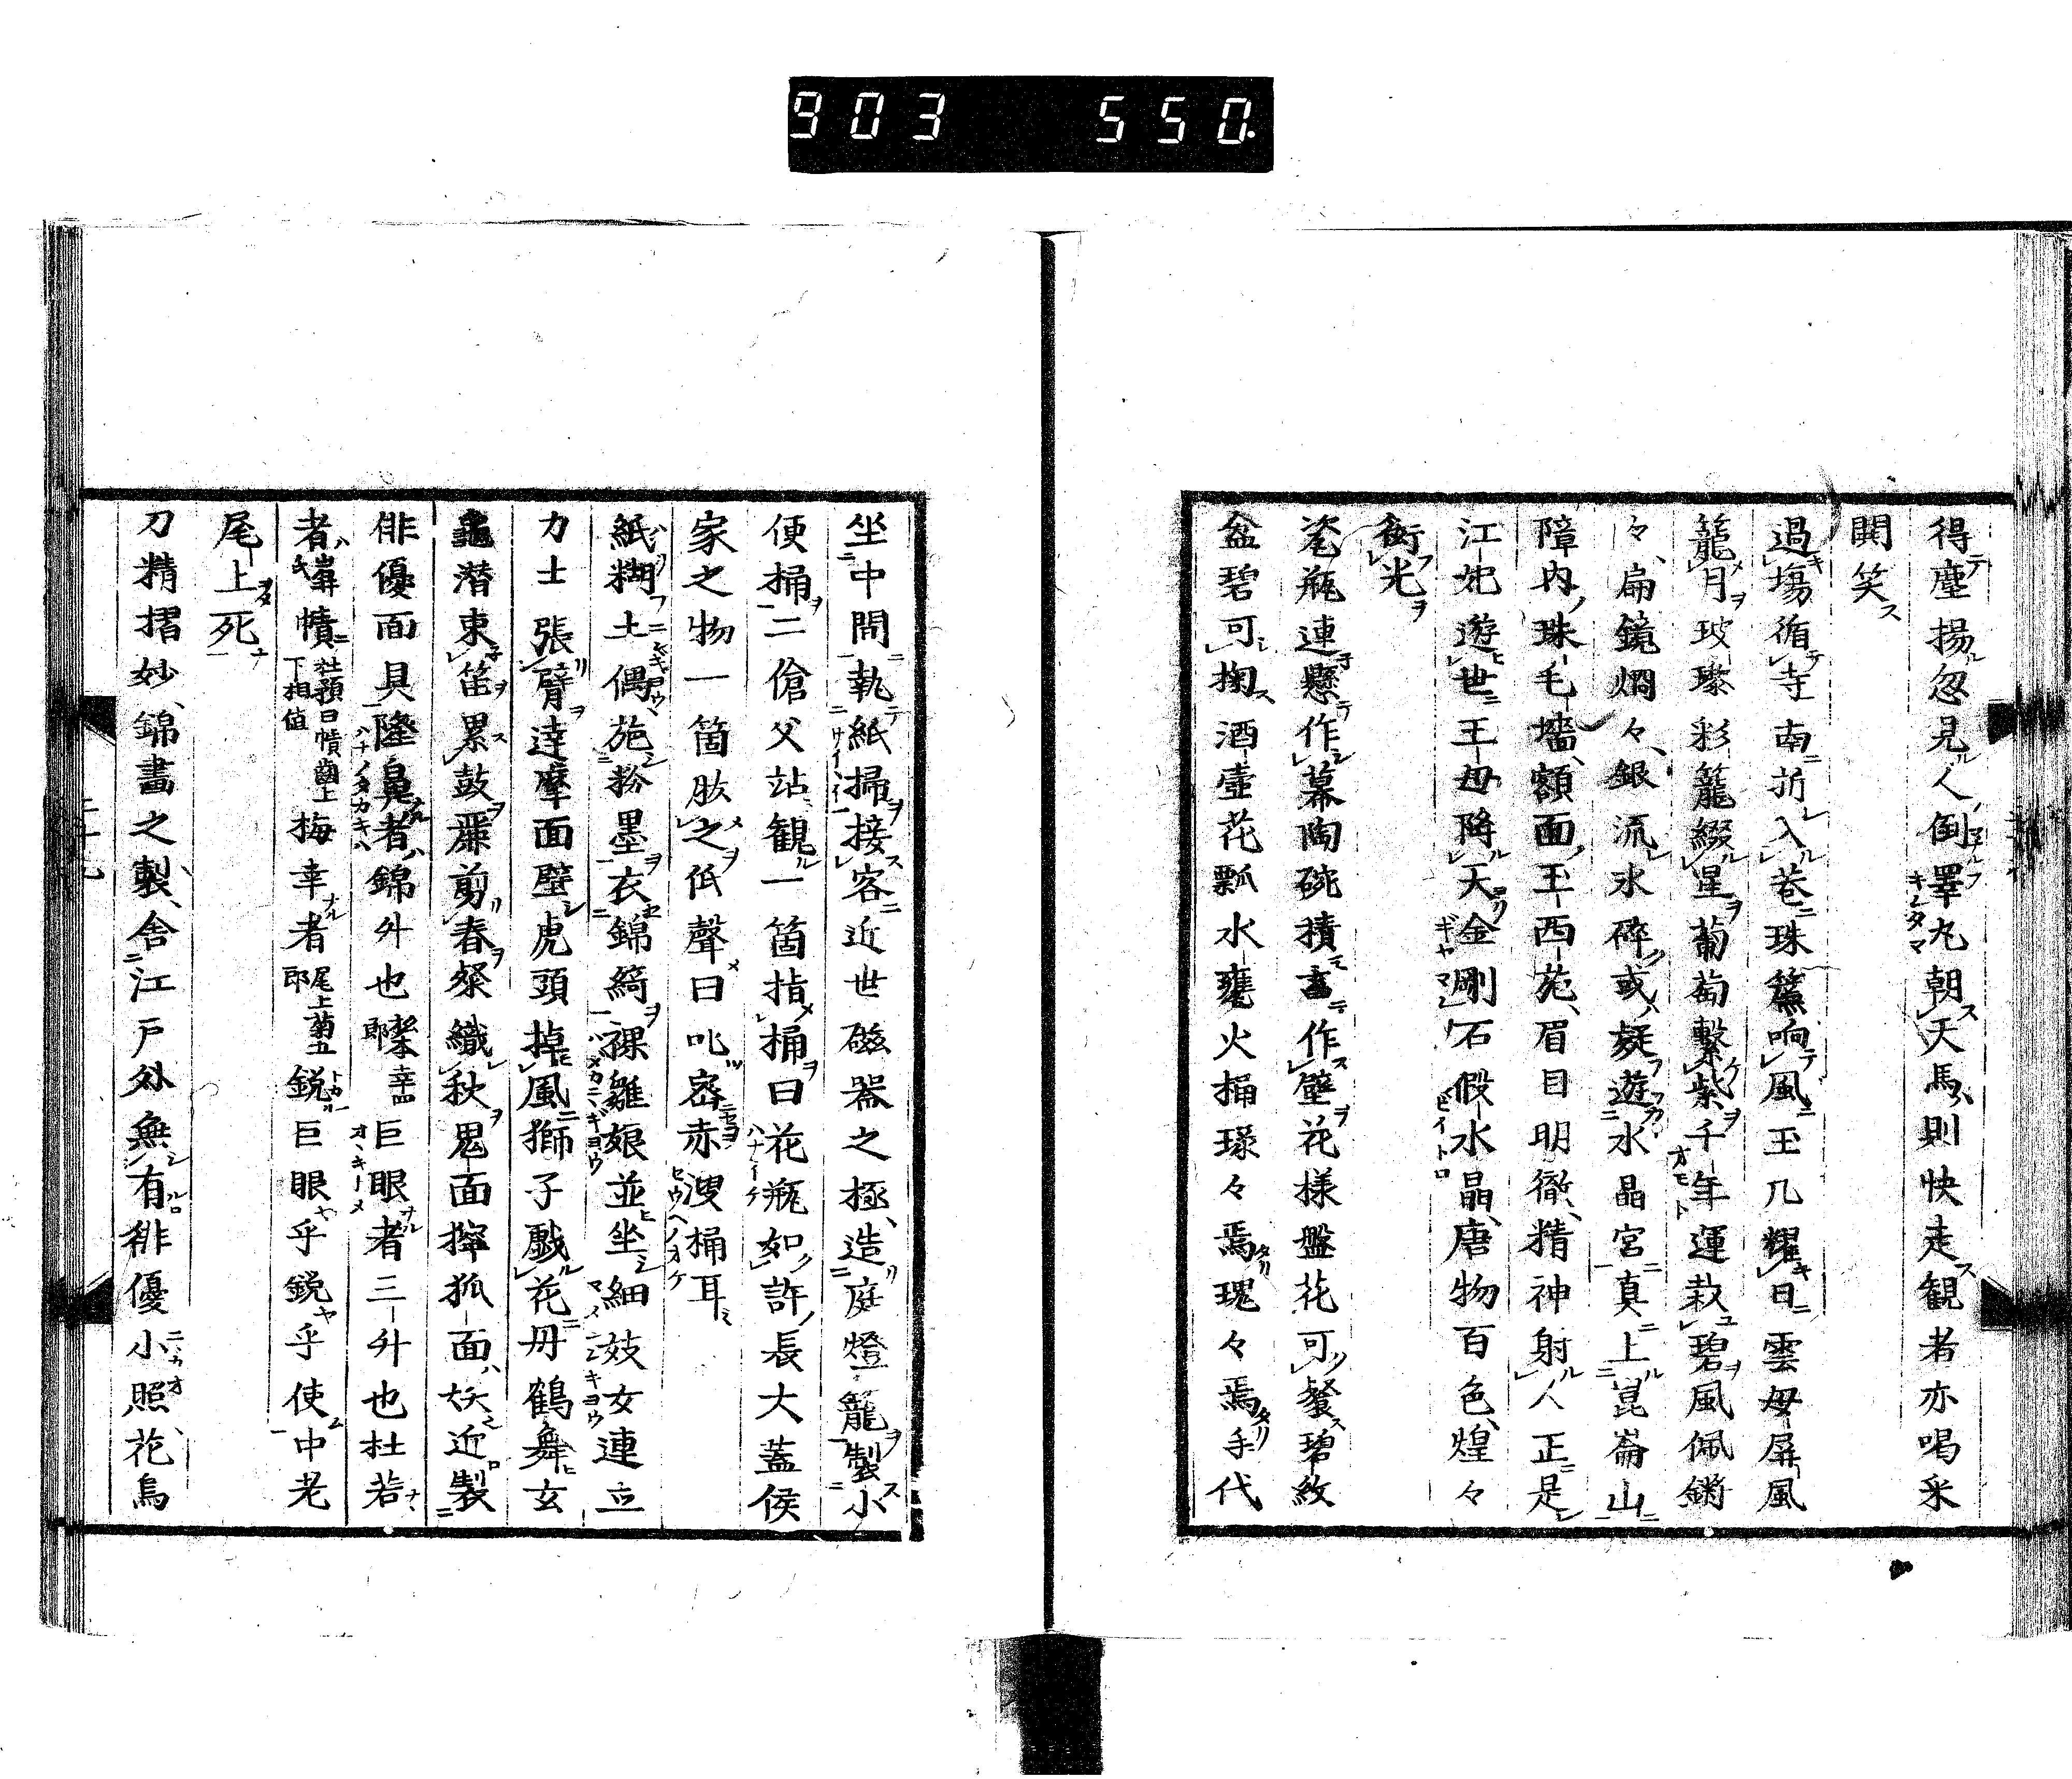 903 550.
得塵揚忽見人倒睪丸朝天馬則快走観者亦喝采
閧笑
過塲循寺南折入巷珠簾响風玉几耀日雲母屏風
籠月玻瓈彩籠綴星葡萄繋紫千年運栽碧風佩鏘
々扁鏡烱々銀流水碎或疑遊水晶宮真上崑崙山
障内珠毛墻額面玉西苑眉目明徹精神射人正是
江妃遊世王母降天金剛石假水晶唐物百色煌々
衒光
瓷瓶連懸作幕陶碗積畜作壁花様盤花可餐碧紋
盆碧可掬酒壺花瓢水甕火桶璆々焉瑰々焉手代
坐中間執紙掃接客近世磁器之極造庭燈籠製小
便桶二傖父站観一箇指桶曰花瓶如許長大蓋侯
家之物一箇肱之低聲曰叱密赤溲桶耳
紙糊土偶施粉墨衣錦綺裸雛娘並坐細妓女連立
力士張臂達摩面壁虎頭掉風獅子戲花丹鶴舞玄
龜潜東笛累鼓羃剪春粲織秋鬼面擰狐面妖近製
俳優面具隆鼻者錦升也 松本幸四郎 巨眼者三升也杜若
者齒幘 杜預曰幘齒上下相値 梅幸者 尾上菊五郎 鋭巨眼乎鋭乎使中老
尾上死
刀精摺妙錦畫之製舎江戸外無有俳優小照花鳥